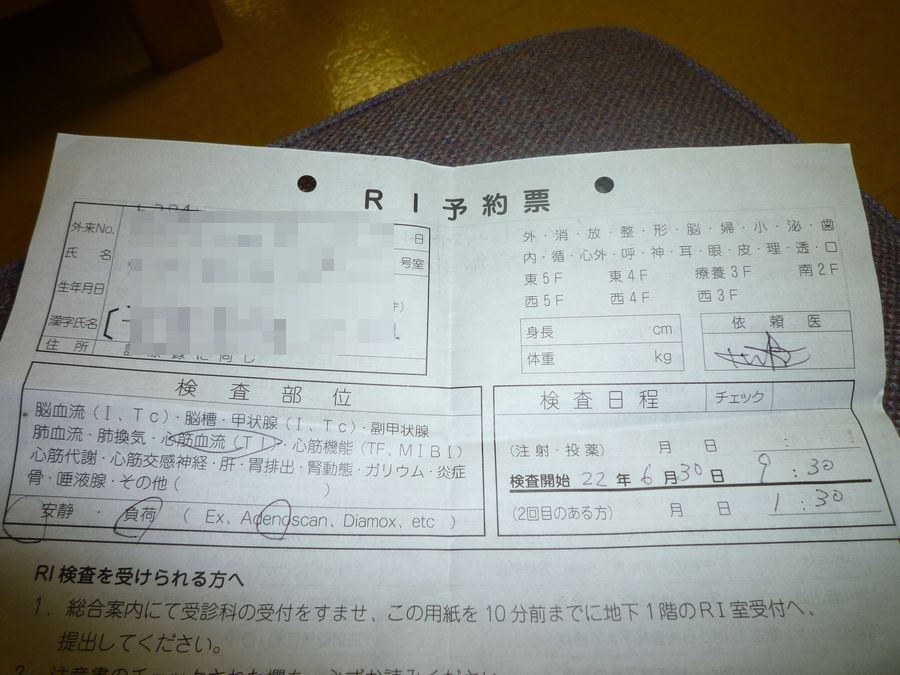 RI予約票
外来No.
日
氏 名
号室
生年月日
漢字氏名
住 所
に同じ
外・消・放・整・形・脳・婦・小・泌・歯
内・循・心外・呼・神・耳・眼・皮・理・透・口
東5F 東4F 療養3F 南2F
西5F 西4F 西3F
身長 cm
体重 kg
依頼医
検査部位
脳血流(I、Tc)・脳槽・甲状腺(I、Tc)・副甲状腺
肺血流・肺換気・心筋血流(Tl)・心筋機能(TF、MIBI)
心筋代謝・心筋交感神経・肝・胃排出・腎動態・ガリウム・炎症
骨・唾液腺・その他( )
安静 ・ 負荷 ( Ex、Adenoscan、Diamox、etc )
検査日程 チェック
(注射・投薬) 月 日 :
検査開始 22年6月30日 9:30
(2回目のある方) 月 日 1:30
RI検査を受けられる方へ
1. 総合案内にて受診科の受付をすませ、この用紙を10分前までに地下1階のRI室受付へ、
提出してください。
2. 注意書のチェックされた欄を、必ずお読みください